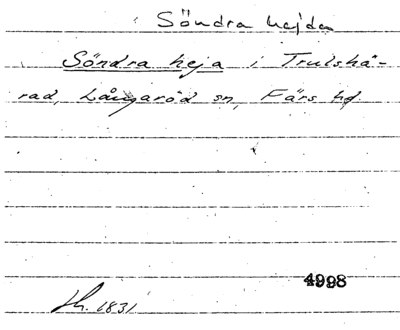 Söndra hejda
Söndra heja i Trulshä-
rad, Långaröd sn, Färs hd
4998
h. 1831